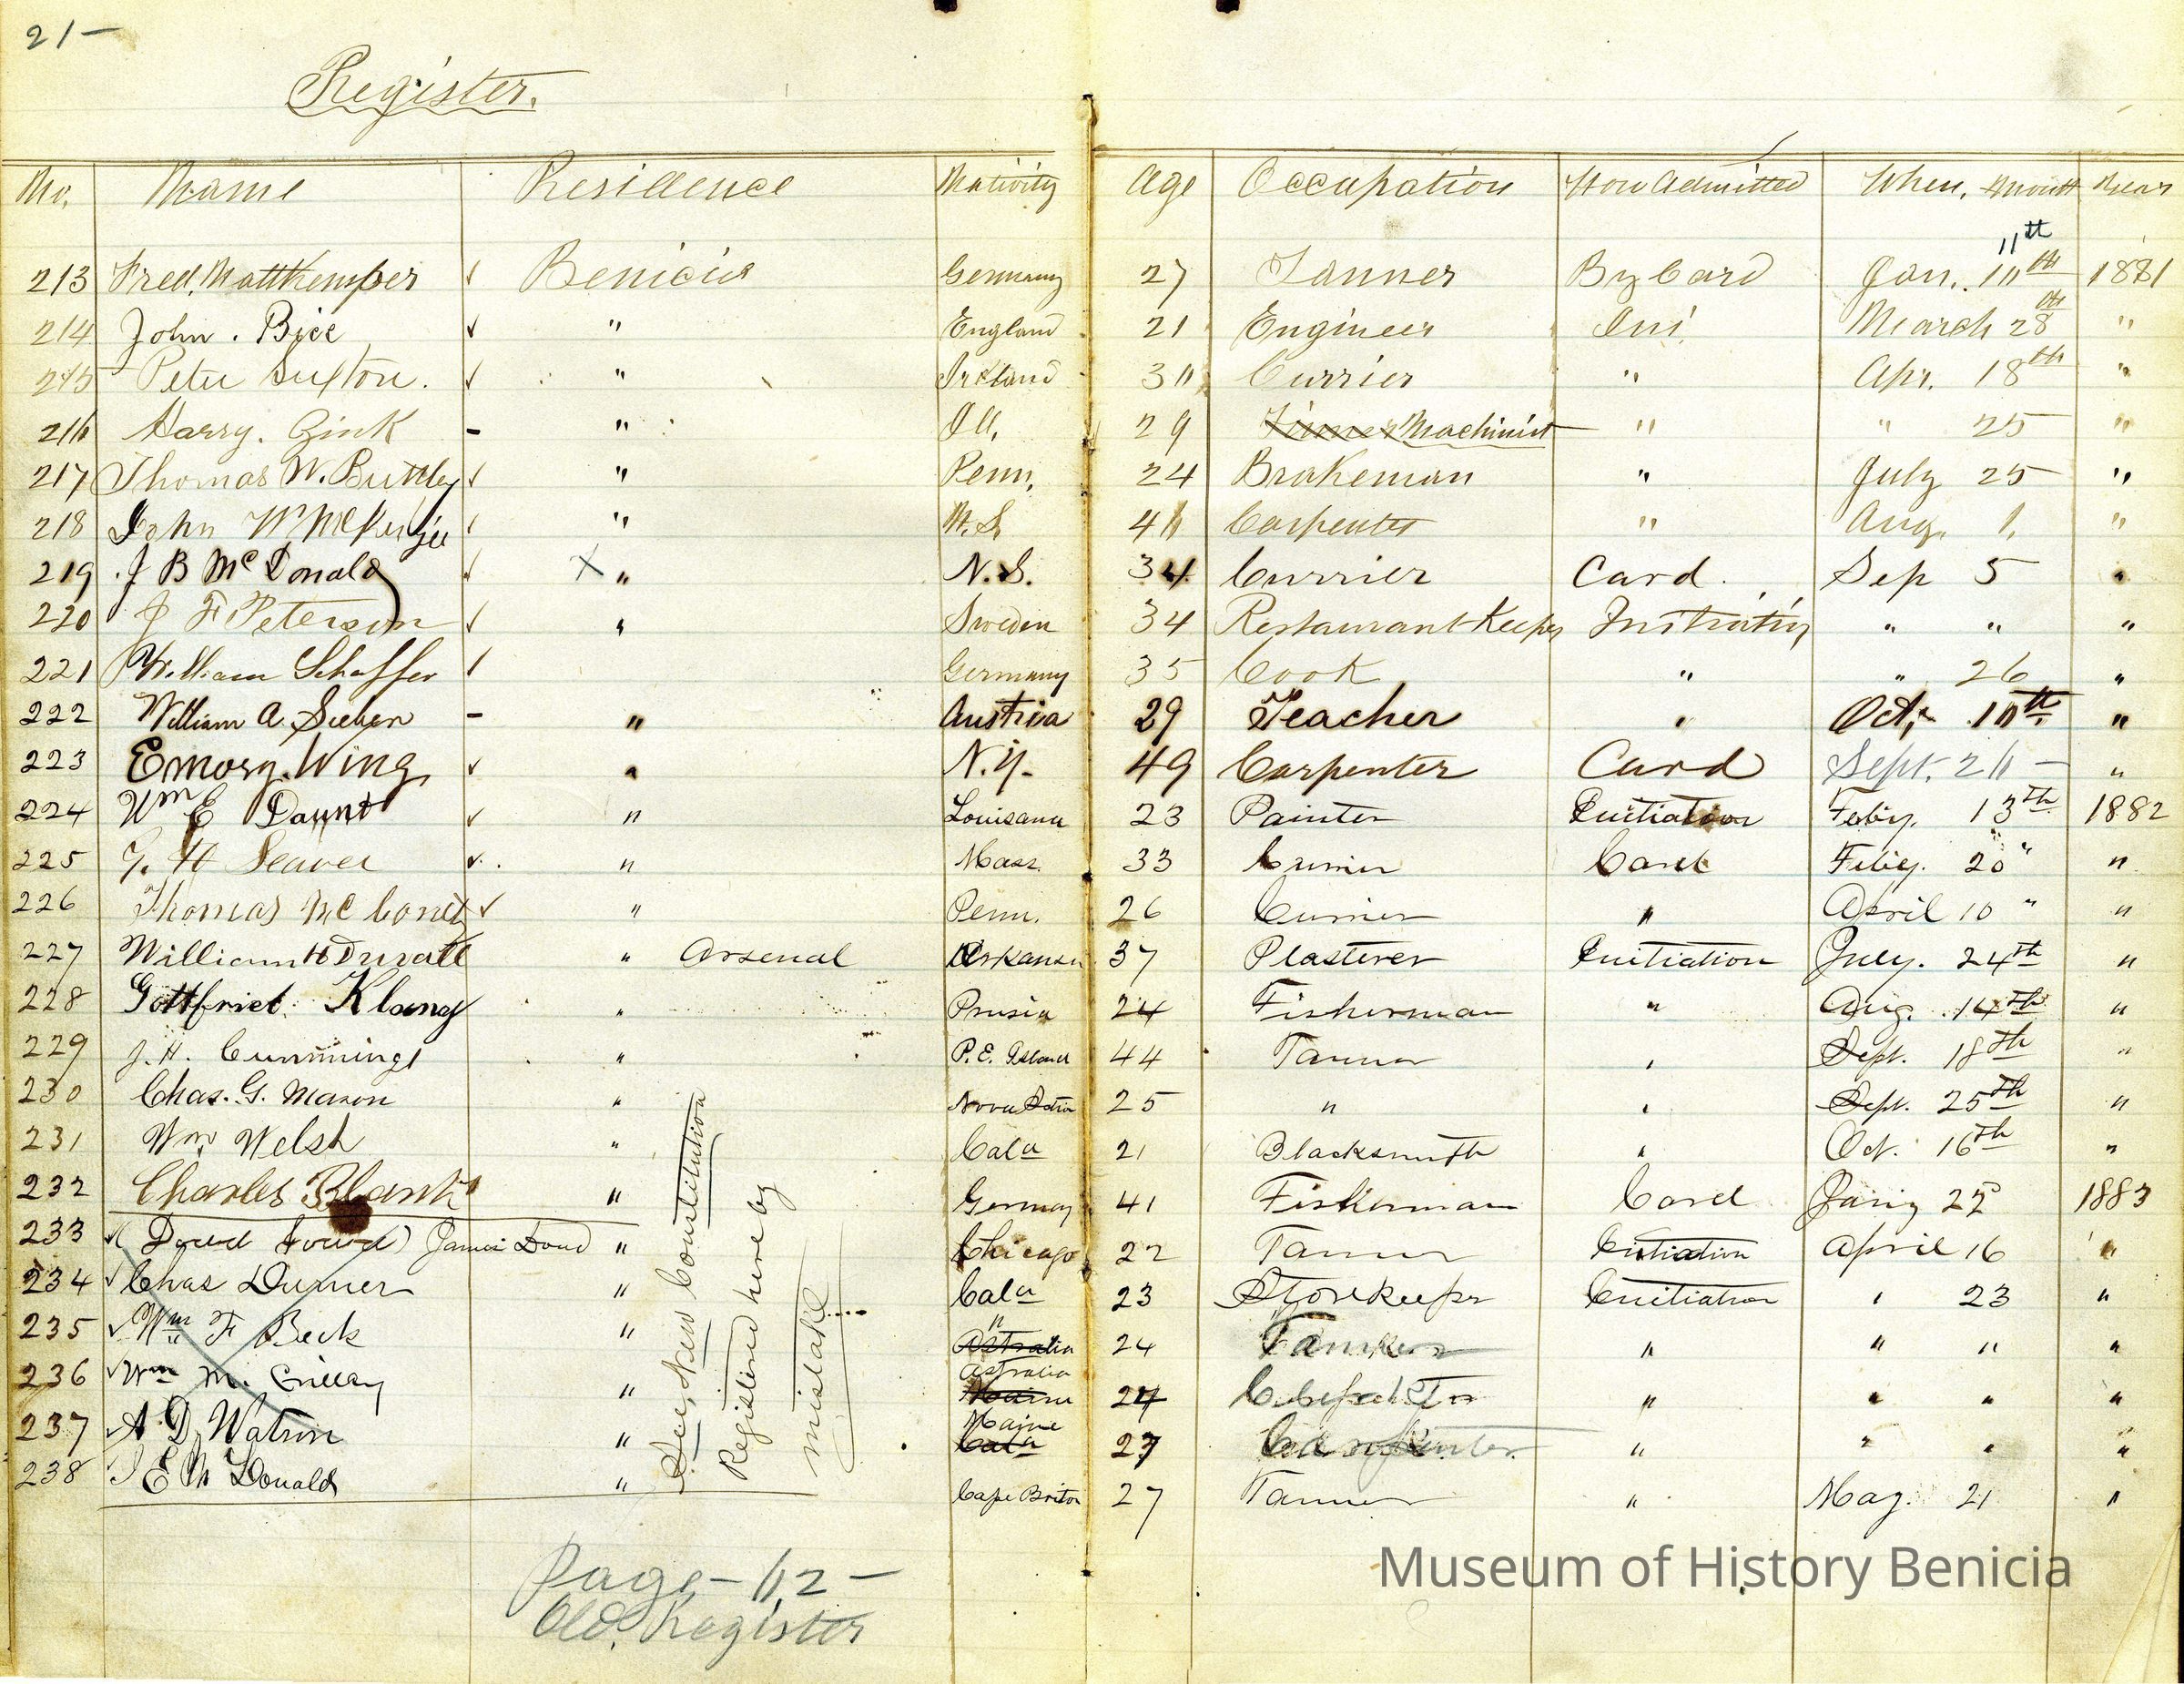 21-
Register.
No. Name Residence Nativity Age Occupation How Admitted When. Month Year
11th
213 Fred. Mattkemper ✓ Benicia Germany 27 Tanner By Card Jan. 10th 1881
214 John . Bice ✓ " England 21 Engineer Ini. March 28th "
215 Peter Suxton. ✓ " Ireland Currier " Apr. 18th "
Harry. Gink - " Ill. 29 Machinist " " 25 "
217 Thomas W. Buttley ✓ " Penn. 24 Brakeman " July 25 "
218 John W McKenzie ✓ " N.S. Carpenter " Aug. 1. "
219 J B McDonald ✓ X " N.S. 34 Currier Card. Sep 5 "
220 J F Peterson ✓ " Sweden 34 Restaurant Keeper " " "
221 William Schaffer ✓ Germany 35 Cook " " 26 "
222 William A. - " Austria 29 Teacher " Oct. 10th "
223 Emory. Wing ✓ " N.Y. 49 Carpenter Card Sept. "
224 Wm E Daunt ✓ " Louisana 23 Painter Initiation Feby. 13th 1882
225 G. H Seaver ✓ " Mass. 33 Currier Card Feby. 20 " "
226 Thomas Mc ✓ " Penn. 26 Currier " April 10 " "
227 William H Duvall " Arsenal Arkansa 37 Plasterer Initiation July. 24th "
228 Gottfriet Klang " Prusia 24 Fisherman " Aug. 14th "
229 J. H. Cummings " P. E. Island 44 Tanner " Sept. 18th "
230 Chas. G. Mason " Nova Scotia 25 " " Sept. 25th "
231 Wm. Welsh " Cala 21 Blacksmith " Oct. 16th "
232 Charles Blank " Germany 41 Fisherman Card 1883
233 ✓( Doud ) James Doud " Chicago 22 Tanner Initiation April 16 "
234 ✓ Chas Durner " Cala 23 Storekeeper Initiation " 23 "
235 ✓ Wm F Beck " " Astralia 24 Tanner " " " "
236 ✓ Wm M. " Astralia Maine 24 " " " "
237 ✓ A. D. Watson " Maine Cala 27 Carpenter " " " "
238 J E Mc Donald " Cape Briton 27 Tanner " May. 21 "
See, New Constitution
Registered here by
mistake
Page - 12 -
Old. Register
Museum of History Benicia